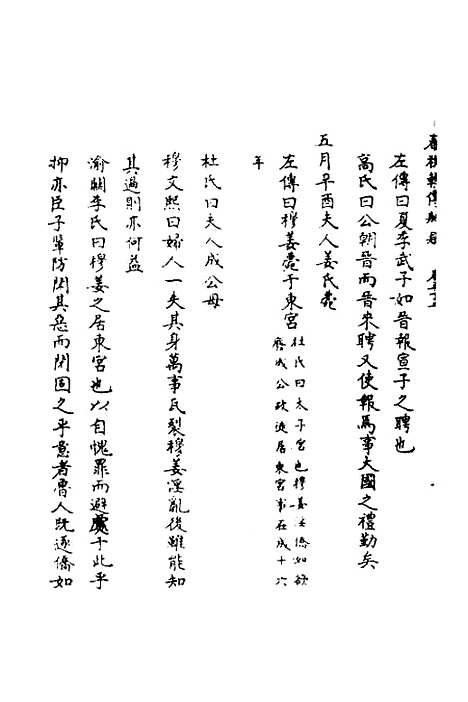 春秋輯傳辨疑
左傳曰夏季武子如晉報宣子之聘也
高氏曰公朝晉而晉來聘又使報焉事大國之禮勤矣
五月辛酉夫人姜氏薨
左傳曰穆姜薨于東宮杜氏曰太子宮也穆姜淫僑如欲
廢成公故徙居東宮事在成十六
年
杜氏曰夫人成公母
穆文熙曰婦人一失其身萬事瓦裂穆姜淫亂後雖能知
其過則亦何益
渝關李氏曰穆姜之居東宮也以自愧罪而避處于此乎
抑亦臣子輩防閑其惡而閉固之乎意者魯人既逐僑如